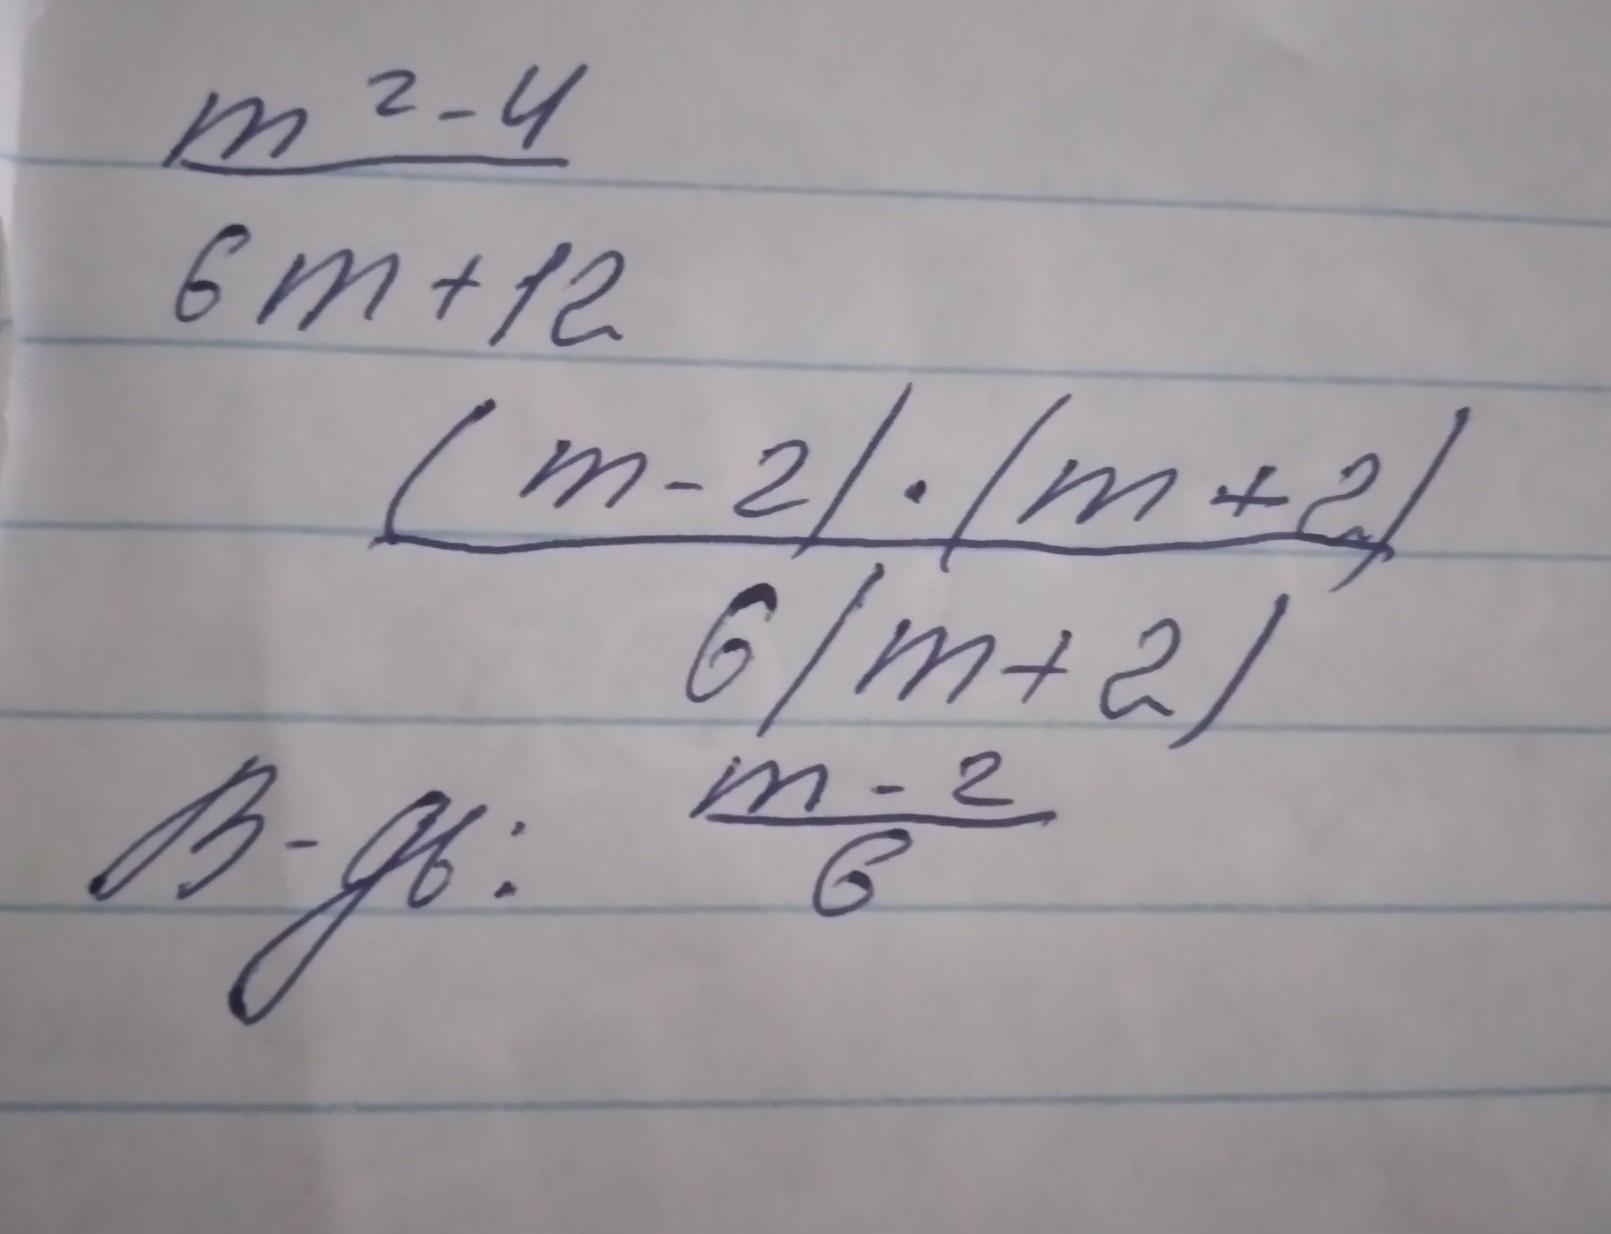 m²-4
6m+12
(m-2)·(m+2)
6(m+2)
m-2
В-дь:
6